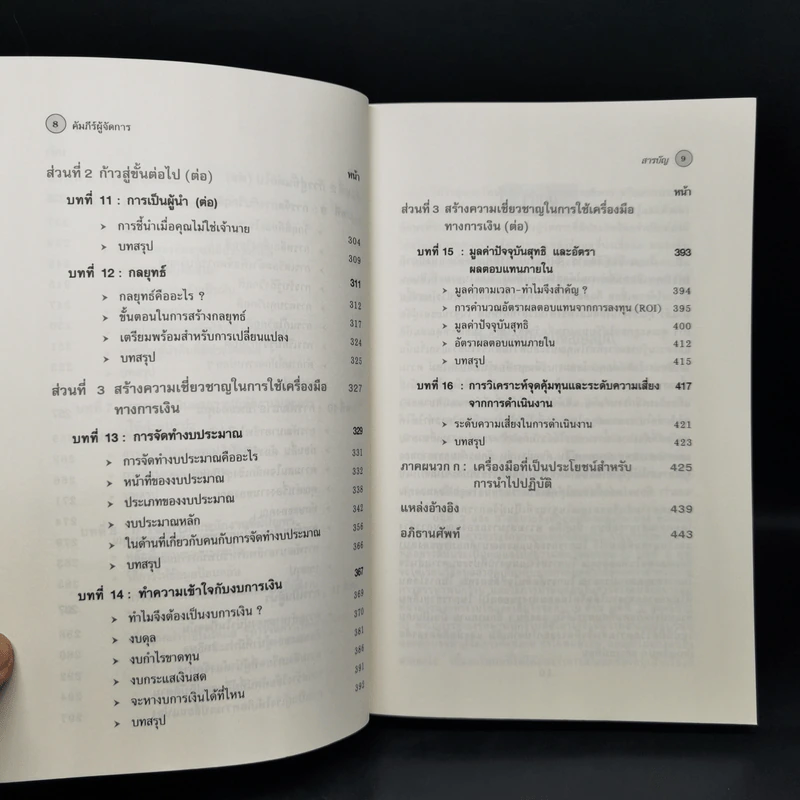 8 คัมภีร์ผู้จัดการ
ส่วนที่ 2 ก้าวสู่ขั้นต่อไป (ต่อ) หน้า
บทที่ 11 : การเป็นผู้นำ (ต่อ)
การชี้นำเมื่อคุณไม่ใช่เจ้านาย 304
บทสรุป 309
บทที่ 12 : กลยุทธ์ 311
กลยุทธ์คืออะไร ? 312
ขั้นตอนในการสร้างกลยุทธ์ 317
เตรียมพร้อมสำหรับการเปลี่ยนแปลง 324
บทสรุป 325
ส่วนที่ 3 สร้างความเชี่ยวชาญในการใช้เครื่องมือ 327
ทางการเงิน
บทที่ 13 : การจัดทำงบประมาณ 329
การจัดทำงบประมาณคืออะไร 331
หน้าที่ของงบประมาณ 332
ประเภทของงบประมาณ 336
งบประมาณหลัก 342
ในด้านที่เกี่ยวกับคนกับการจัดทำงบประมาณ 356
บทสรุป 366
บทที่ 14 : ทำความเข้าใจกับงบการเงิน 367
ทำไมจึงต้องเป็นงบการเงิน ? 369
งบดุล 370
งบกำไรขาดทุน 381
งบกระแสเงินสด 388
จะหางบการเงินได้ที่ไหน 391
บทสรุป 392
สารบัญ 9
หน้า
ส่วนที่ 3 สร้างความเชี่ยวชาญในการใช้เครื่องมือ
ทางการเงิน (ต่อ)
บทที่ 15 : มูลค่าปัจจุบันสุทธิ และอัตรา 393
ผลตอบแทนภายใน
มูลค่าตามเวลา-ทำไมจึงสำคัญ ? 394
การคำนวณอัตราผลตอบแทนจากการลงทุน (ROI) 395
มูลค่าปัจจุบันสุทธิ 400
อัตราผลตอบแทนภายใน 412
บทสรุป 415
บทที่ 16 : การวิเคราะห์จุดคุ้มทุนและระดับความเสี่ยง 417
จากการดำเนินงาน
ระดับความเสี่ยงในการดำเนินงาน 421
บทสรุป 423
ภาคผนวก ก : เครื่องมือที่เป็นประโยชน์สำหรับ 425
การนำไปปฏิบัติ
แหล่งอ้างอิง 439
อภิธานศัพท์ 443